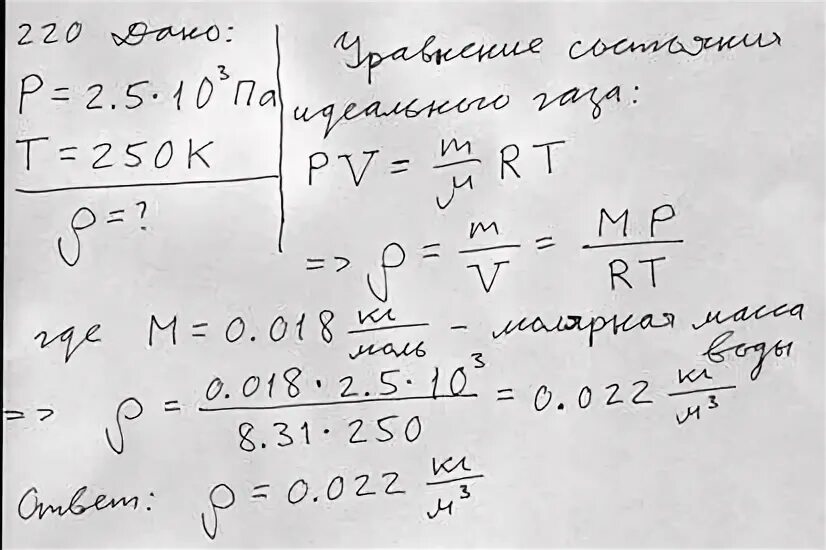 220 Дано:
P = 2.5·10³ Па
T = 250 K
ρ = ?
Уравнение состояния
идеального газа:
PV = m/μ RT
=> ρ = m/V = MP/RT
где M = 0.018 кг/моль – молярная масса
воды
=> ρ = 0.018·2.5·10³/8.31·250 = 0.022 кг/м³
Ответ: ρ = 0.022 кг/м³